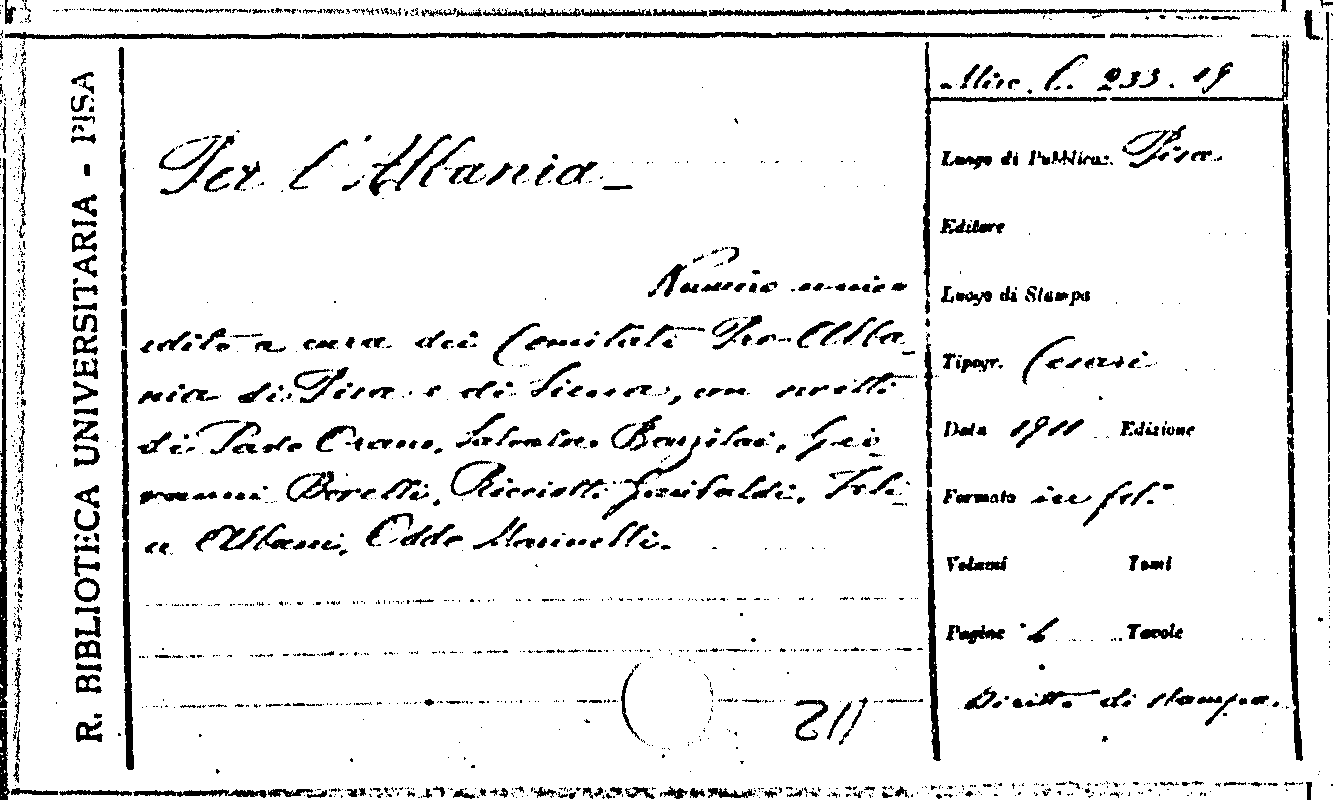 R. BIBLIOTECA UNIVERSITARIA - PISA
Per l'Albania -
Numero unico
edito a cura dei Comitati Pro-Alba-
nia di Pisa e di Siena, con scritti
di Paolo Orano, Salvatore Barzilai, Gio-
vanni Borelli, Ricciotti Garibaldi, Feli-
ce Albani, Oddo Marinelli.
211
Misc. C. 233. 19
Luogo di Pubblicaz. Pisa
Editore
Luogo di Stampa
Tipogr. Cesari
Data 1911 Edizione
Formato in fol.°
Volumi Tomi
Pagine 6 Tavole
Diritto di stampa.